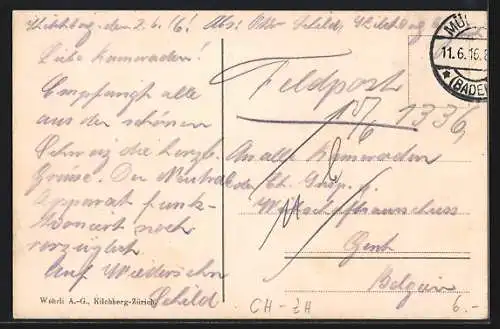 Kilchberg, den 2.6.16. Abs: Otto Schild, Kilchberg
Liebe Kameraden!
Empfangt alle
aus der schönen
Schweiz die herzl.
Grüsse. Der Neutrale
Apparat funk-
tioniert noch
vorzüglich.
Auf Wiedersehn
Schild
Wehrli A.-G., Kilchberg-Zürich
MÜL
11.6.16.8
* (BADEN
Feldpost
1336
An alle Kameraden
der
Wirtschaftsausschuss
Gent
Belgien
CH - ZH
6.-